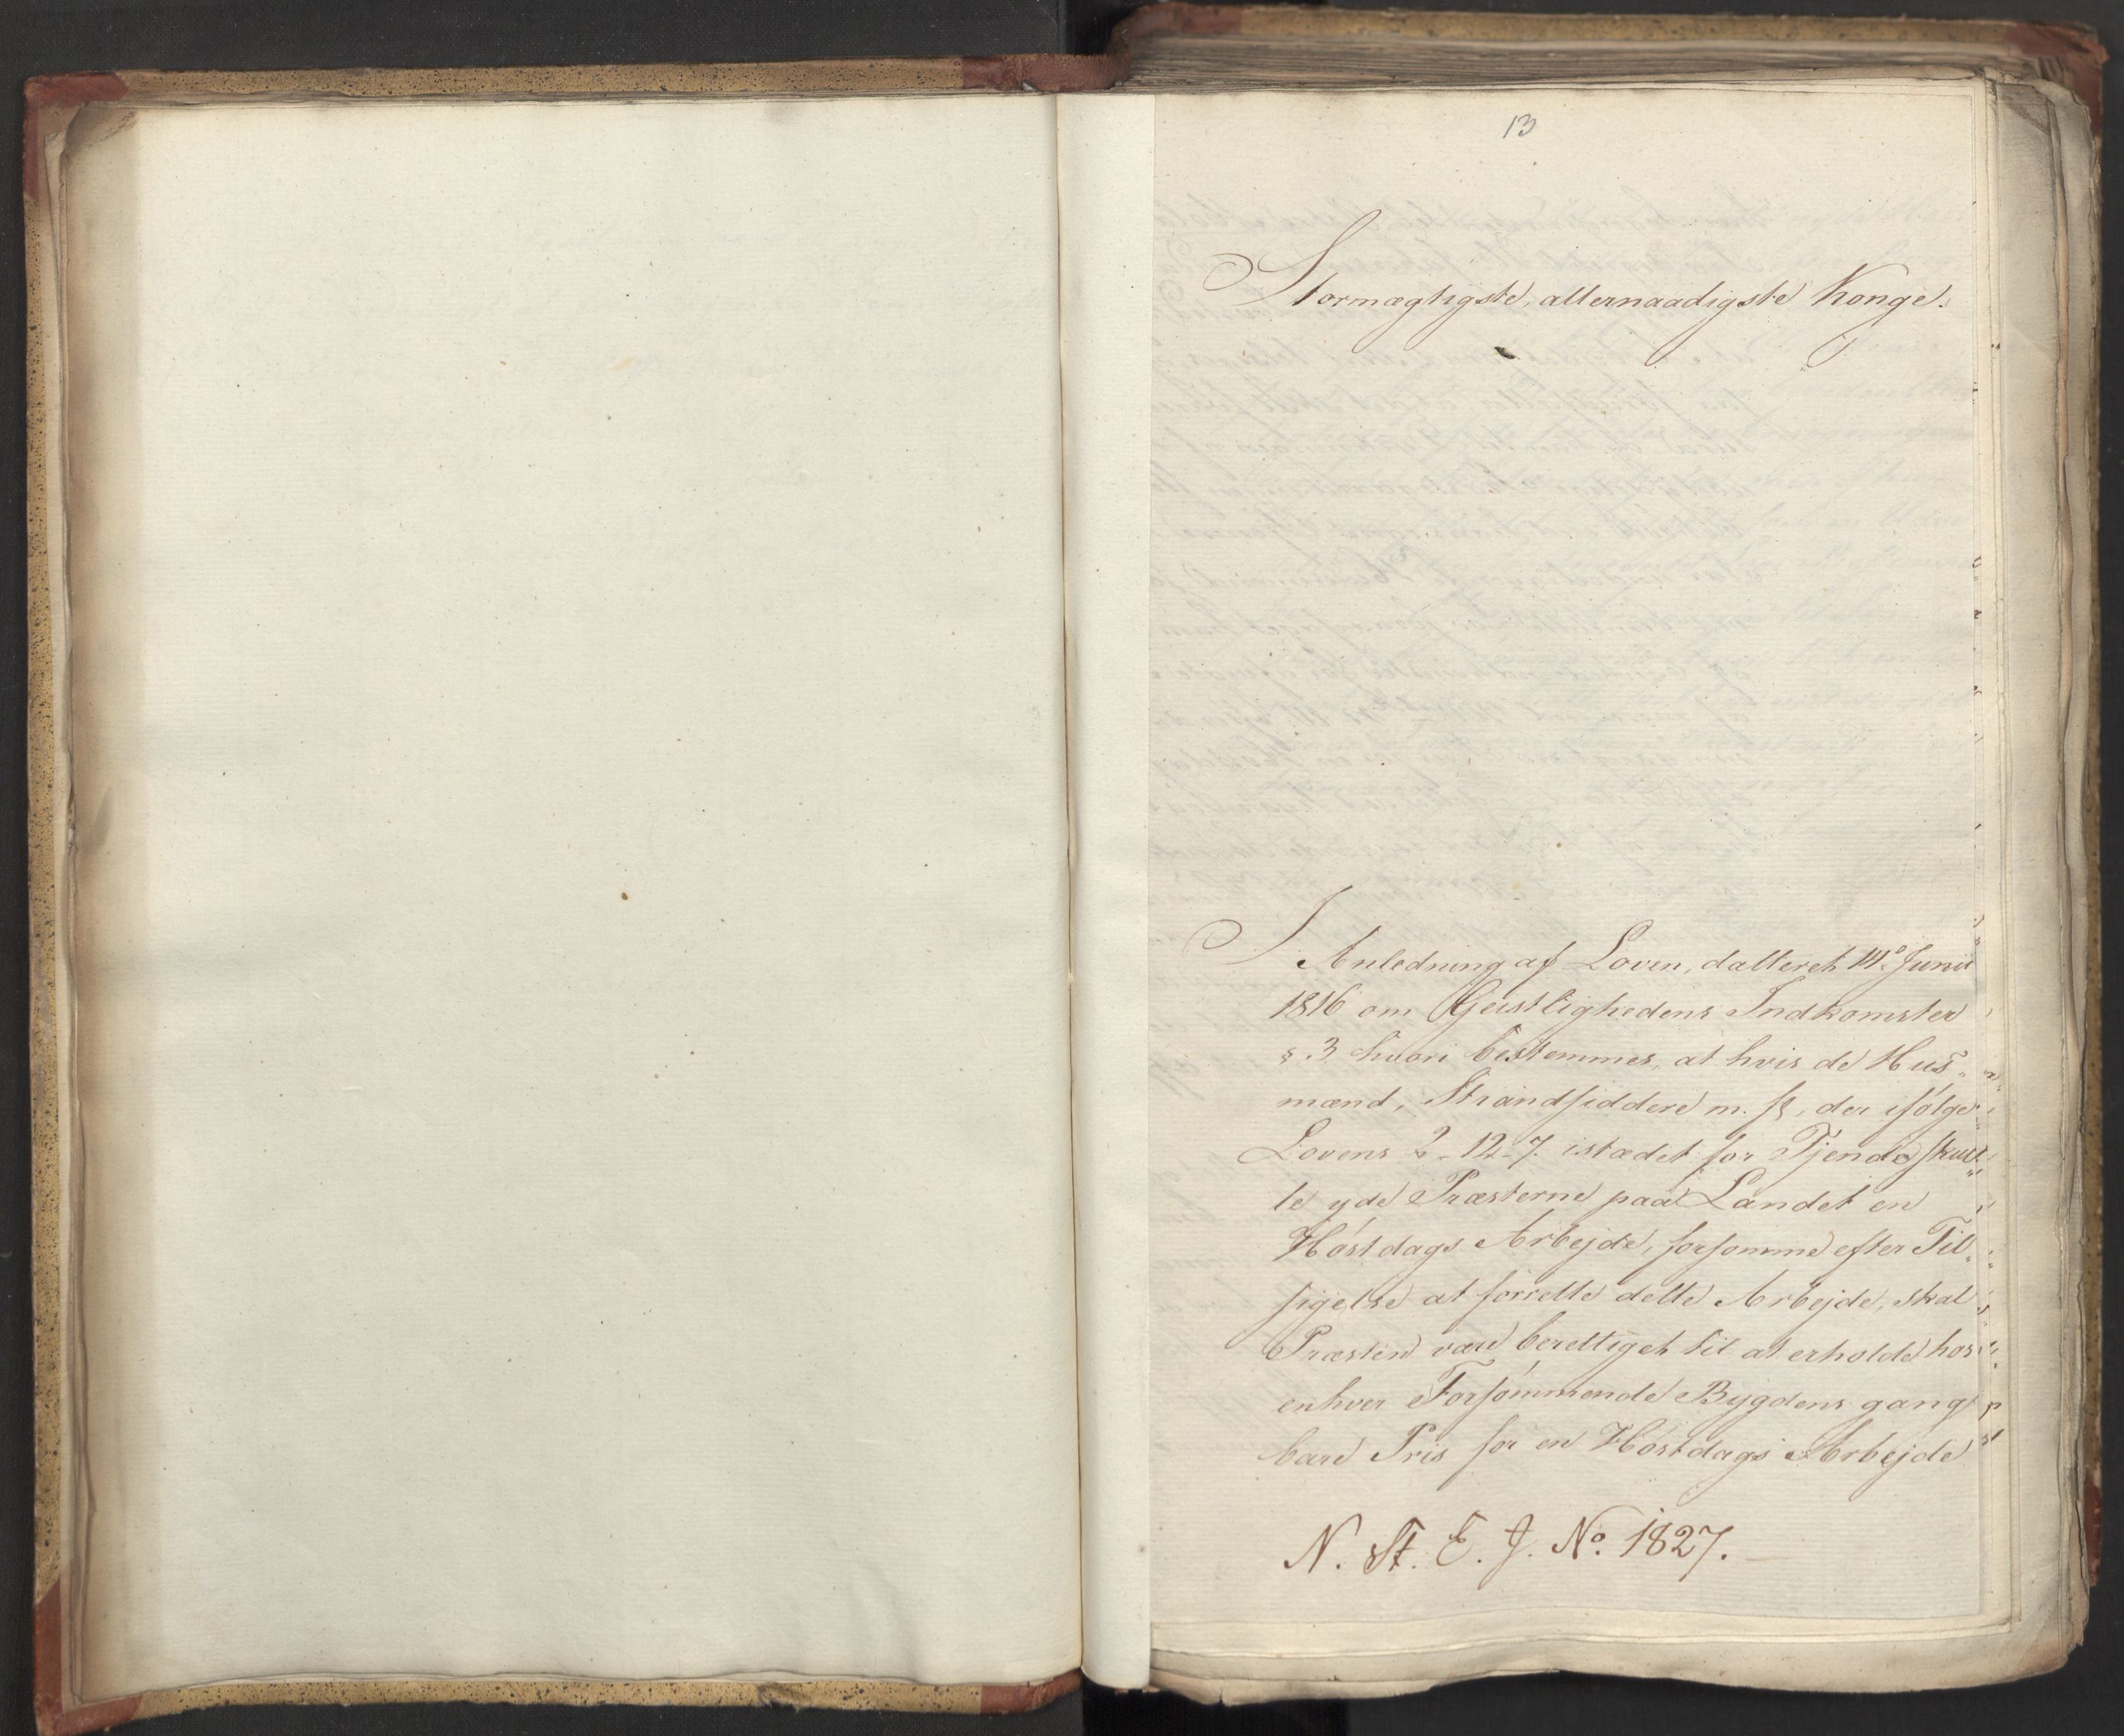 13
Stormægtigste, allernaadigste Konge.
I Anledning af Loven, datteret 14º Junii
1816 om Geistlighedens Indkomster
§. 3 hvori bestemmes, at hvis de Hus„
mænd, Strandsiddere m. fl., der ifølge
Lovens 2-12-7. istædet for Tjende skul„
le yde Præsterne paa Landet en
Høstdags Arbejde, forsømme efter Til„
sigelse at forrette dette Arbejde, skal
Præsten være berettiget til at erholde hos
enhver Forsømmende Bygdens gang„
bare Pris for en Høstdags Arbejde
N. St. E. J. No. 1827.